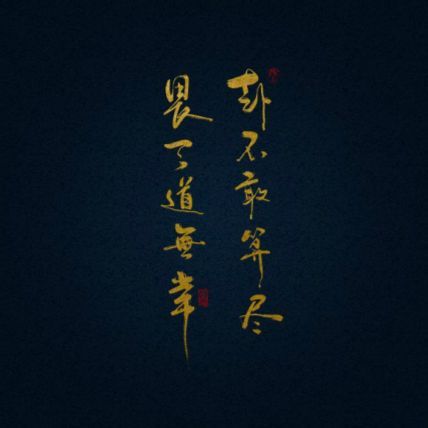 卦不敢算尽
畏天道無常